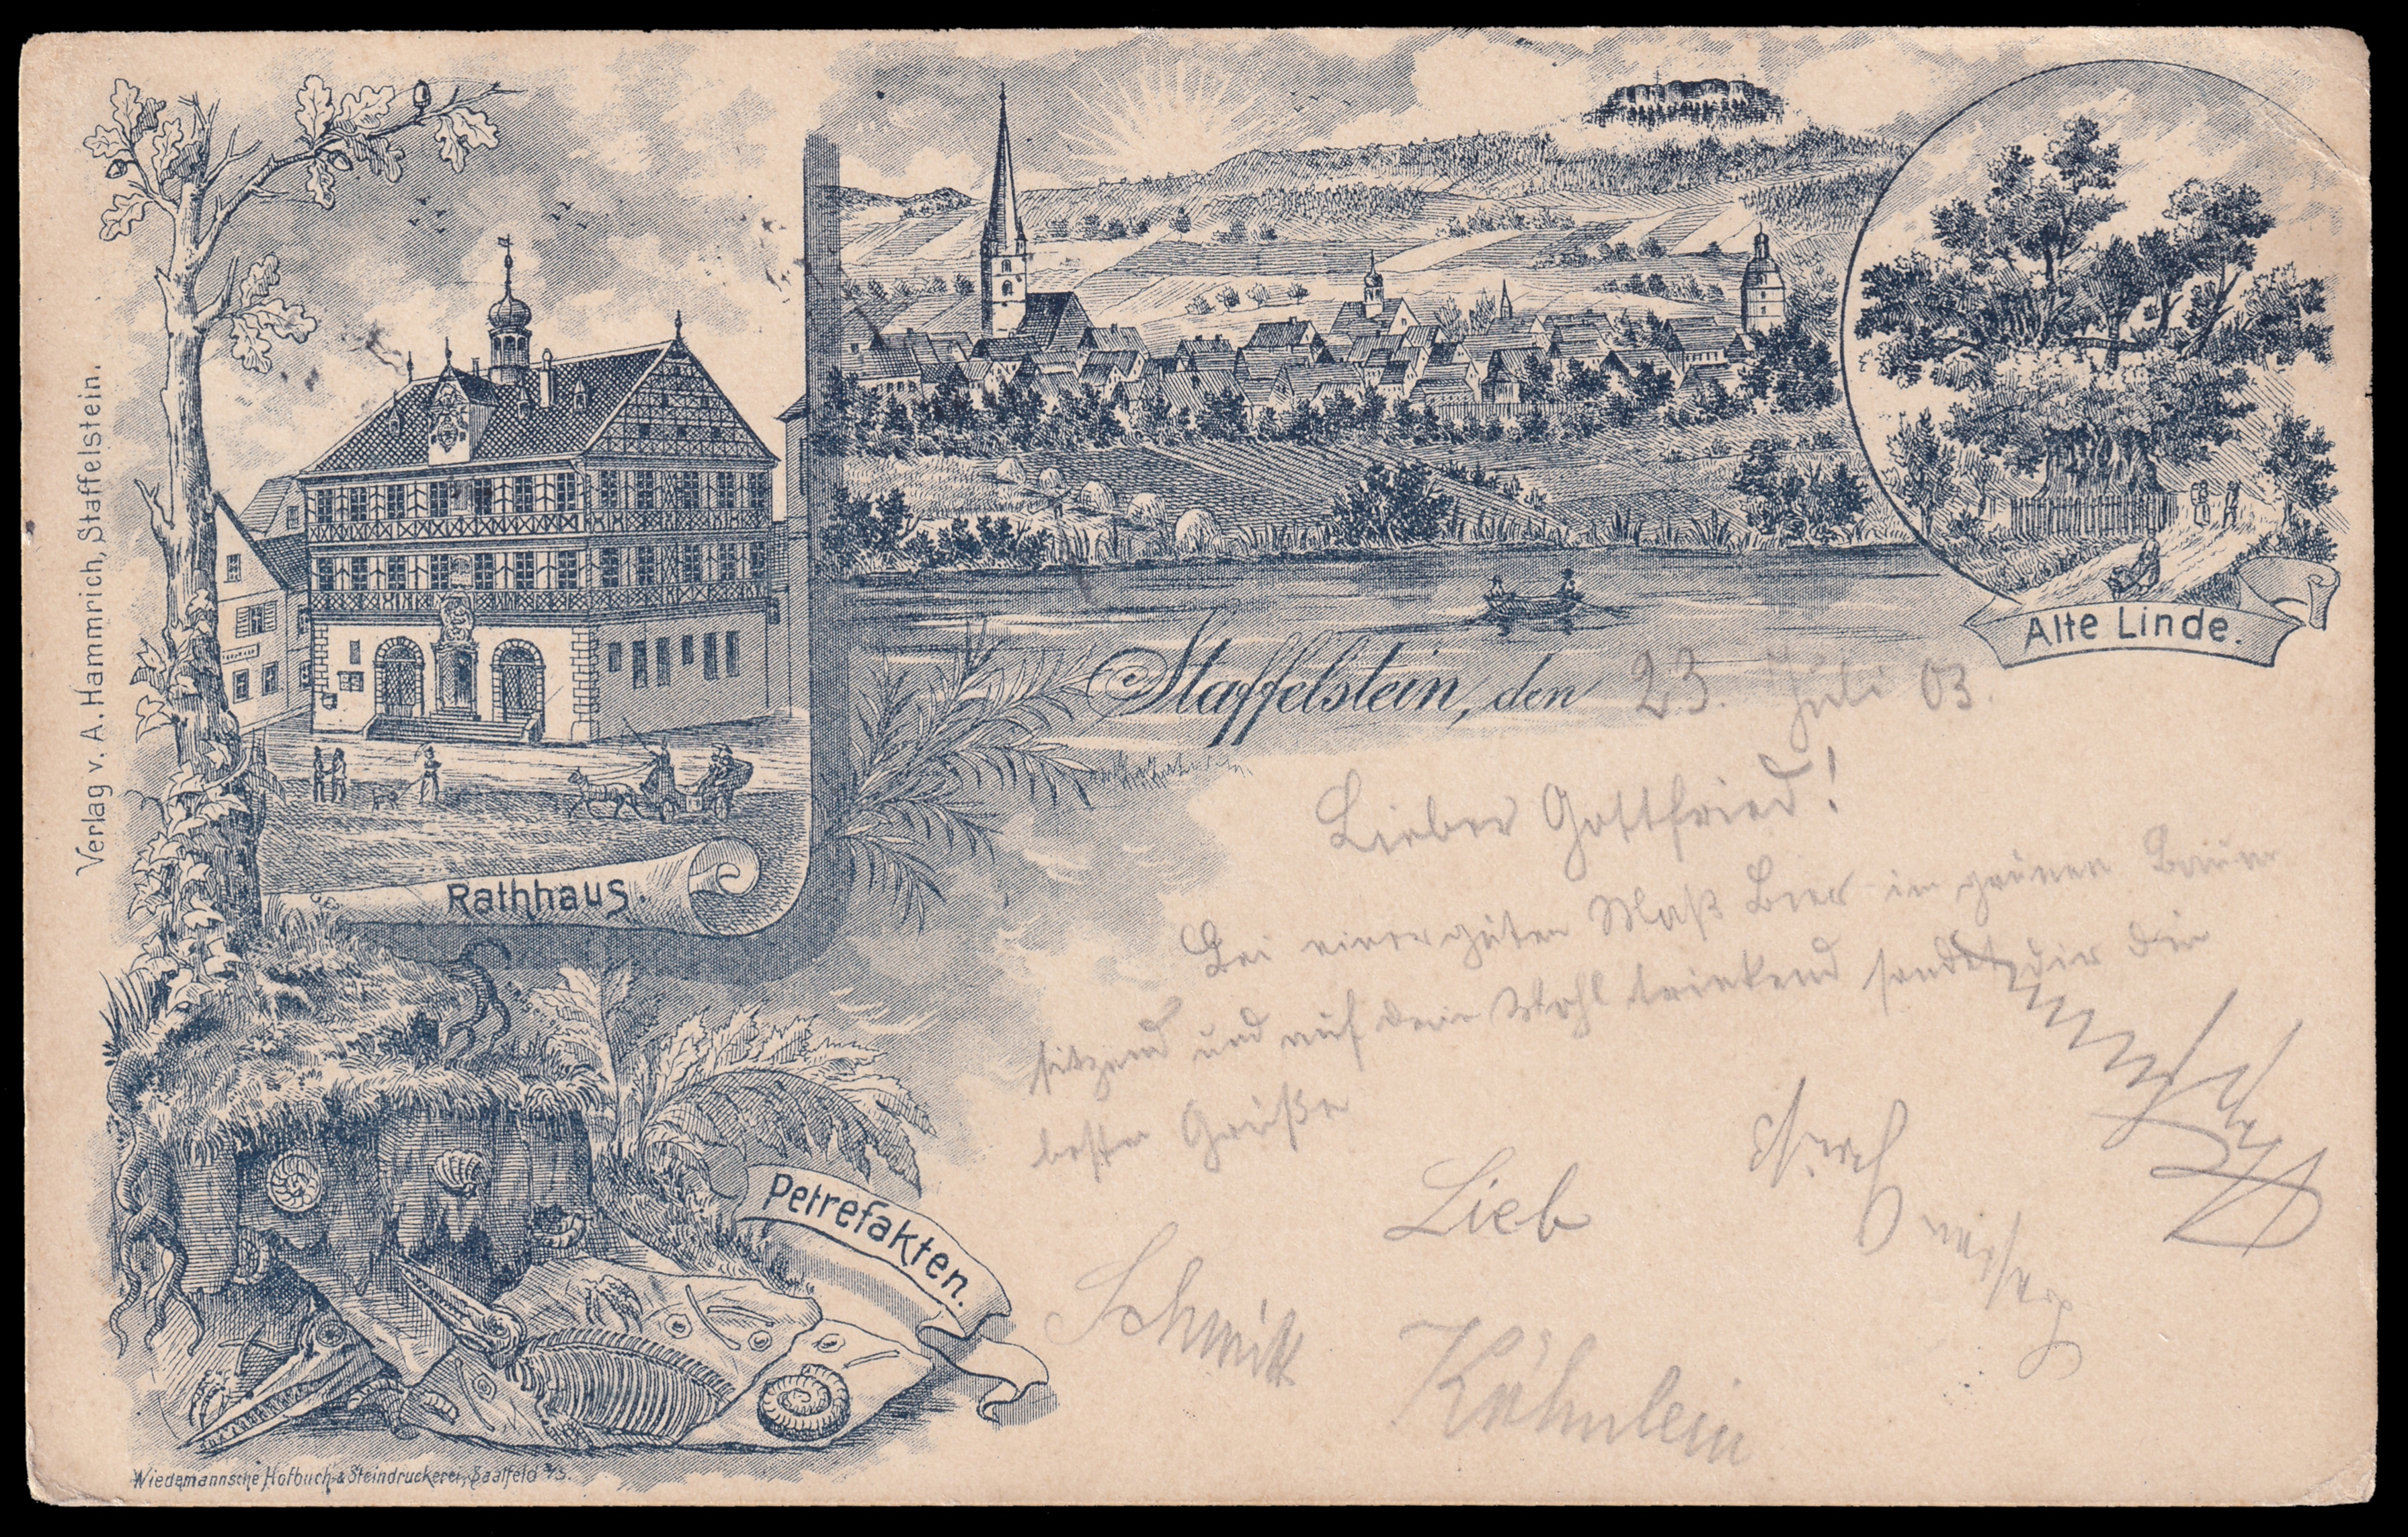 Verlag v. A. Hammrich, Staffelstein.
Rathhaus.
Alte Linde.
Staffelstein, den 23. Juli 03.
Lieber Gottfried!
Bei einer guten Maß Bier im grünen Baum
sitzend und auf dein Wohl trinkend sendet dir die
besten Grüße
Lieb
Schmitt
Kähnlein
Petrefakten.
Wiedemannsche Hofbuch- & Steindruckerei, Saalfeld a/S.